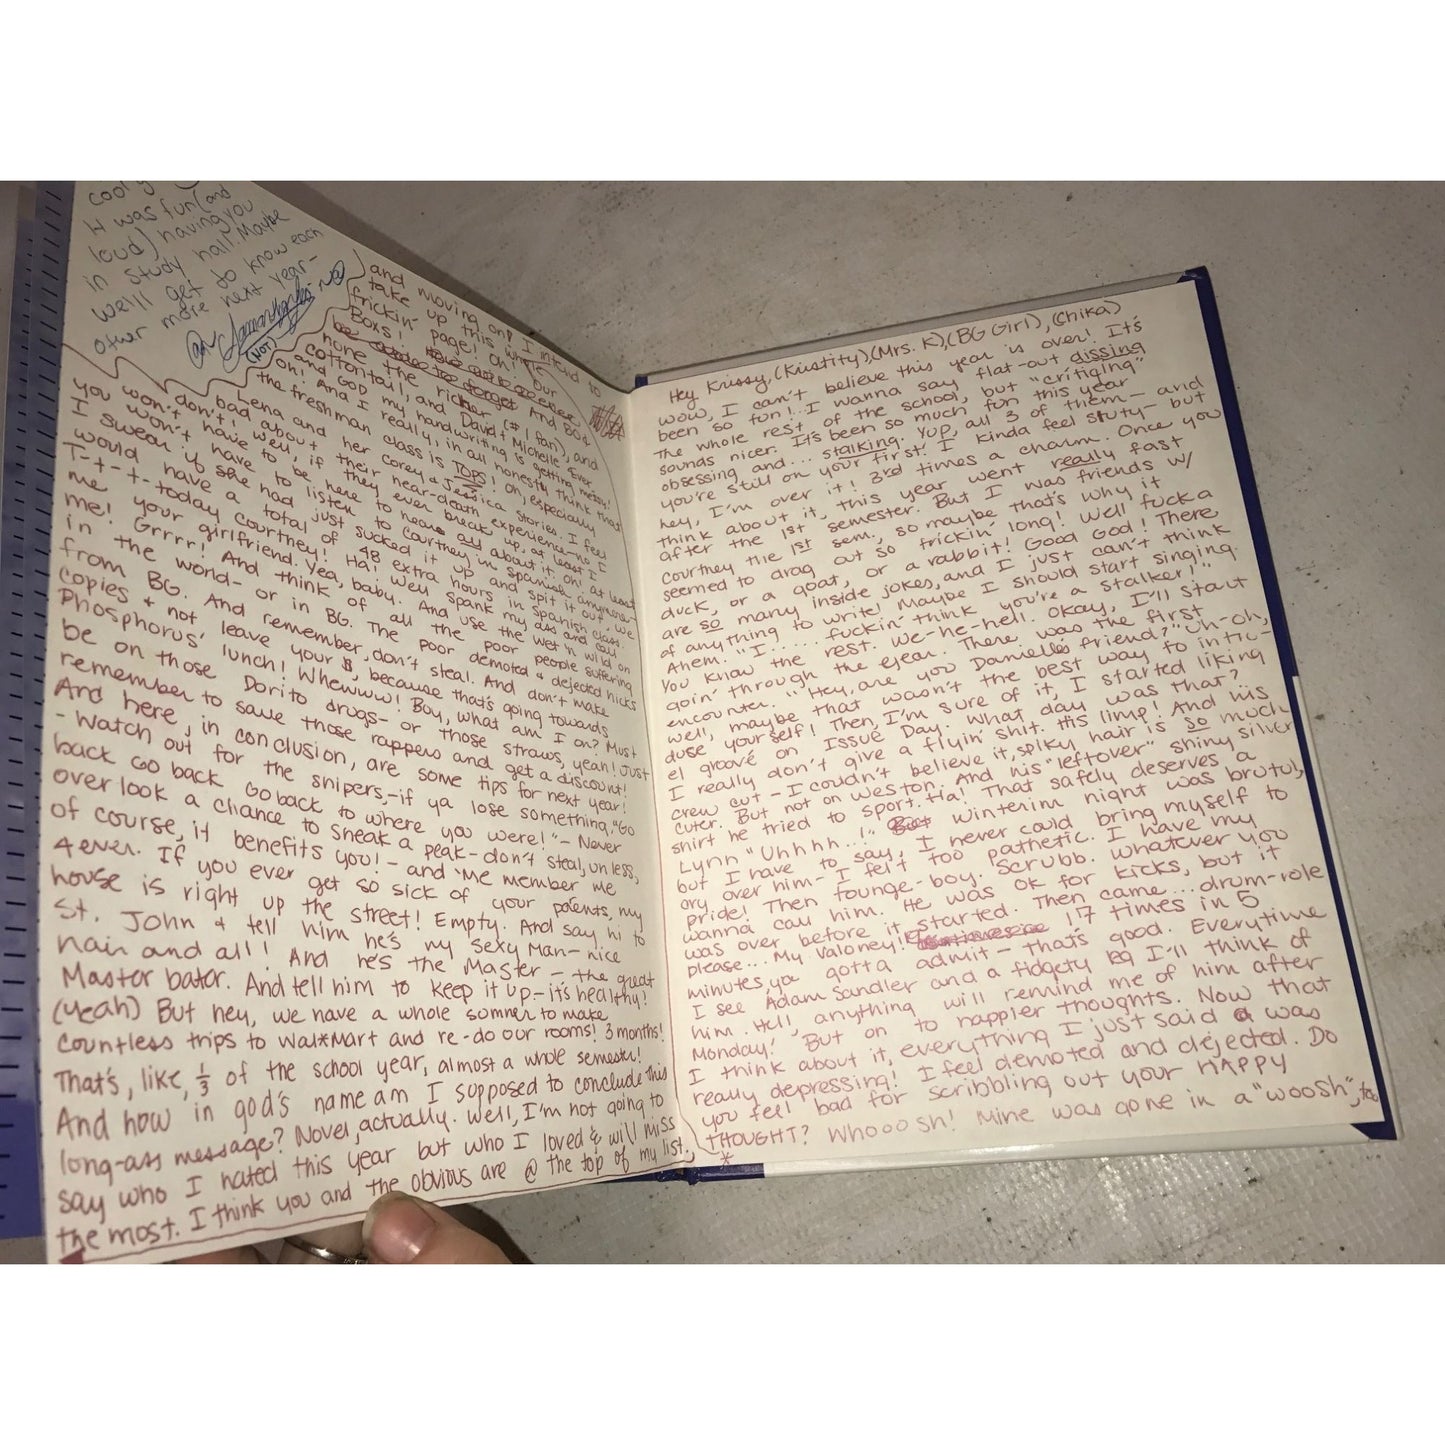 cool
It was fun (and
loud) having you
in study hall. Maybe
we'll get to know each
other more next year-
(NOT)
and moving on! I intend to
take up this whole
frickin' page! Oh! Our
Boxs! And BG&
none the richer (#1 fan), and
cottontail, and David & Michelle 4ever.
and GOD my handwriting is getting messy!
Oh! And I really, in all honesty think that
the freshman class is TOPS! Oh, especially
Lena and her Corey & Jessica stories. I feel
bad about their near-death experience-no I
don't! Well, if they ever break up, at least I
won't have to be here to hear all about it. Oh! at least
you won't have to listen to Courtney in Spanish anymore-
I swear if she had just sucked it up and spit it out, we
would have a total of 48 extra hours in Spanish class.
T-t-t-today Courtney! Ha! Well spank my ass and call
me your girlfriend. Yea, baby. And use the wet n wild on
me! Grrrr! And think of all the poor people suffering
in the world- or in BG. The poor demoted & dejected hicks
from BG. And remember, don't steal. And don't make
copies & not leave your $, because that's going towards
Phosphorus' lunch! Whewww! Boy, what am I on? Must
be on those Dorito drugs- or those straws, yeah! Just
remember to save those rappers and get a discount!
And here, in conclusion, are some tips for next year!
- Watch out for the snipers,-if ya lose something, "Go
back Go back Go back to where you were!" - Never
over look a chance to sneak a peak- don't steal, unless,
of course, it benefits you! - and 'Me member me
4ever. If you ever get so sick of your parents, my
house is right up the street! Empty. And say hi to
St. John & tell him he's my sexy man- nice
hair and all! And he's the Master - the great
Master bator. And tell him to keep it up-it's healthy!
(yeah) But hey, we have a whole summer to make
countless trips to Walxmart and re-do our rooms! 3 months!
That's, like, 1/3 of the school year, almost a whole semester!
And how in god's name am I supposed to conclude this
long-ass message? Novel, actually. Well, I'm not going to
say who I hated this year but who I loved & will miss
the most. I think you and the obvious are @ the top of my list.
Hey Krissy, (Kirstity), (Mrs. K), (BG Girl), (Chika)
wow, I can't believe this year is over! It's
been so fun! I wanna say flat-out dissing
the whole rest of the school, but "critiqing"
sounds nicer. It's been so much fun this year
obsessing and... stalking. Yup, all 3 of them - and
you're still on your first! I kinda feel sluty- but
hey, I'm over it! 3rd times a charm. Once you
think about it, this year went really fast
after the 1st semester. But I was friends w/
Courtney the 1st sem., so maybe that's why it
seemed to drag out so frickin' long! Well fuck a
duck, or a goat, or a rabbit! Good God! There
are so many inside jokes, and I just can't think
of anything to write! Maybe I should start singing.
Ahem. "I..... fuckin' think you're a stalker!"
You know the rest. We-he-hell. Okay, I'll start
goin' through the year. There was the first
encounter. "Hey, are you Danielle's friend?" Uh-oh,
well, maybe that wasn't the best way to intro-
duse yourself! Then, I'm sure of it, I started liking
el groove on Issue Day. What day was that?
I really don't give a flyin' shit. His limp! And his
crew cut - I couldn't believe it, spiky hair is so much
cuter. But not on Weston. And his "leftover" shiny silver
shirt he tried to sport. Ha! That safely deserves a
Lynn "Uhhhh..!" Winterim night was brutul,
but I have to say, I never could bring myself to
cry over him- I felt too pathetic. I have my
pride! Then founge-boy. Scrubb. Whatever you
wanna call him. He was ok for kicks, but it
was over before it started. Then came... drum-role
please... My Valoney! 17 times in 5
minutes, ya gotta admit - that's good. Everytime
I see Adam Sandler and a fidgety leg I'll think of
him. Hell, anything will remind me of him after
Monday! But on to happier thoughts. Now that
I think about it, everything I just said was
really depressing! I feel demoted and dejected. Do
you feel bad for scribbling out your HAPPY
THOUGHT? Whooosh! Mine was gone in a "woosh", too
*